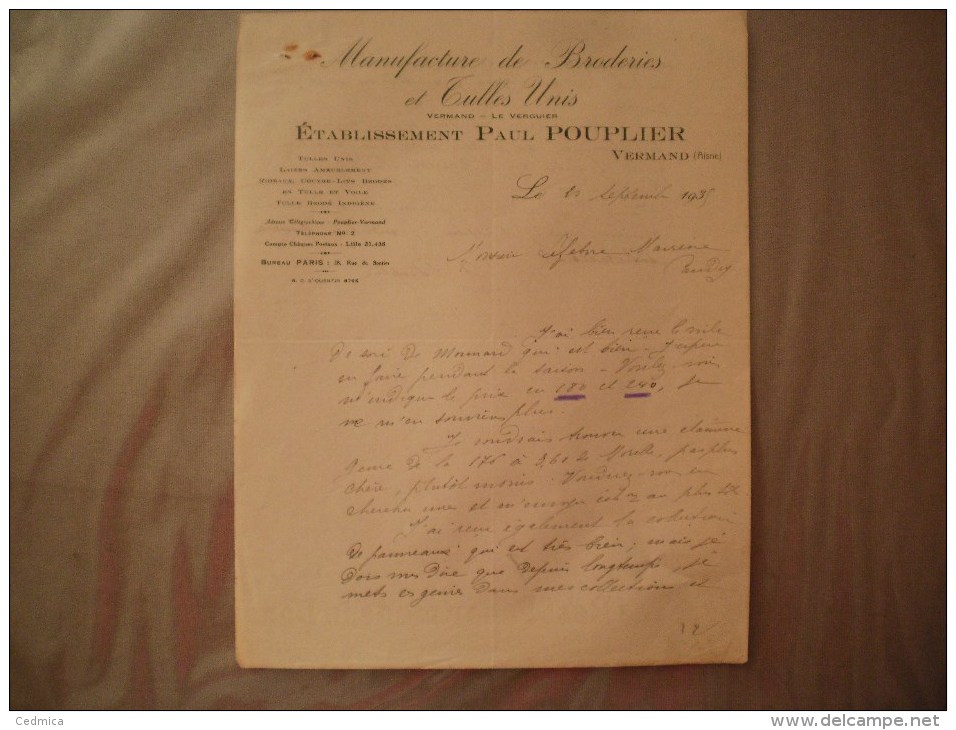 Manufacture de Broderies
et Tulles Unis
VERMAND - LE VERGUIER
ÉTABLISSEMENT PAUL POUPLIER
VERMAND (Aisne)
TULLES UNIS
LAIZES AMEUBLEMENT
RIDEAUX, COUVRE-LITS BRODÉS
EN TULLE ET VOILE
TULLE BRODÉ INDIGÈNE
Adresse Télégraphique : Pouplier-Vermand
TÉLÉPHONE Nº 2
Compte Chèques Postaux : Lille 21.438
BUREAU PARIS : Rue du Sentier
R. C. ST-QUENTIN
Le septembre 193
Monsieur Lefebvre
J'ai bien reçu
de qui est bien. J'espère
en faire pendant la saison. Voulez vous
m'indiquer le prix en 180 et 240, je
ne m'en souviens plus.
Je voudrais trouver une étamine
genre de la 176 à 3,60 de Morelle, pas plus
chère, plutôt moins. Voudriez-vous en
chercher une et m'envoyer au plus tôt.
J'ai reçu également la collection
de panneaux qui est très bien; mais je
dois vous dire que depuis longtemps, je
mets ce genre dans mes collections et
Cedmica
www.delcampe.net